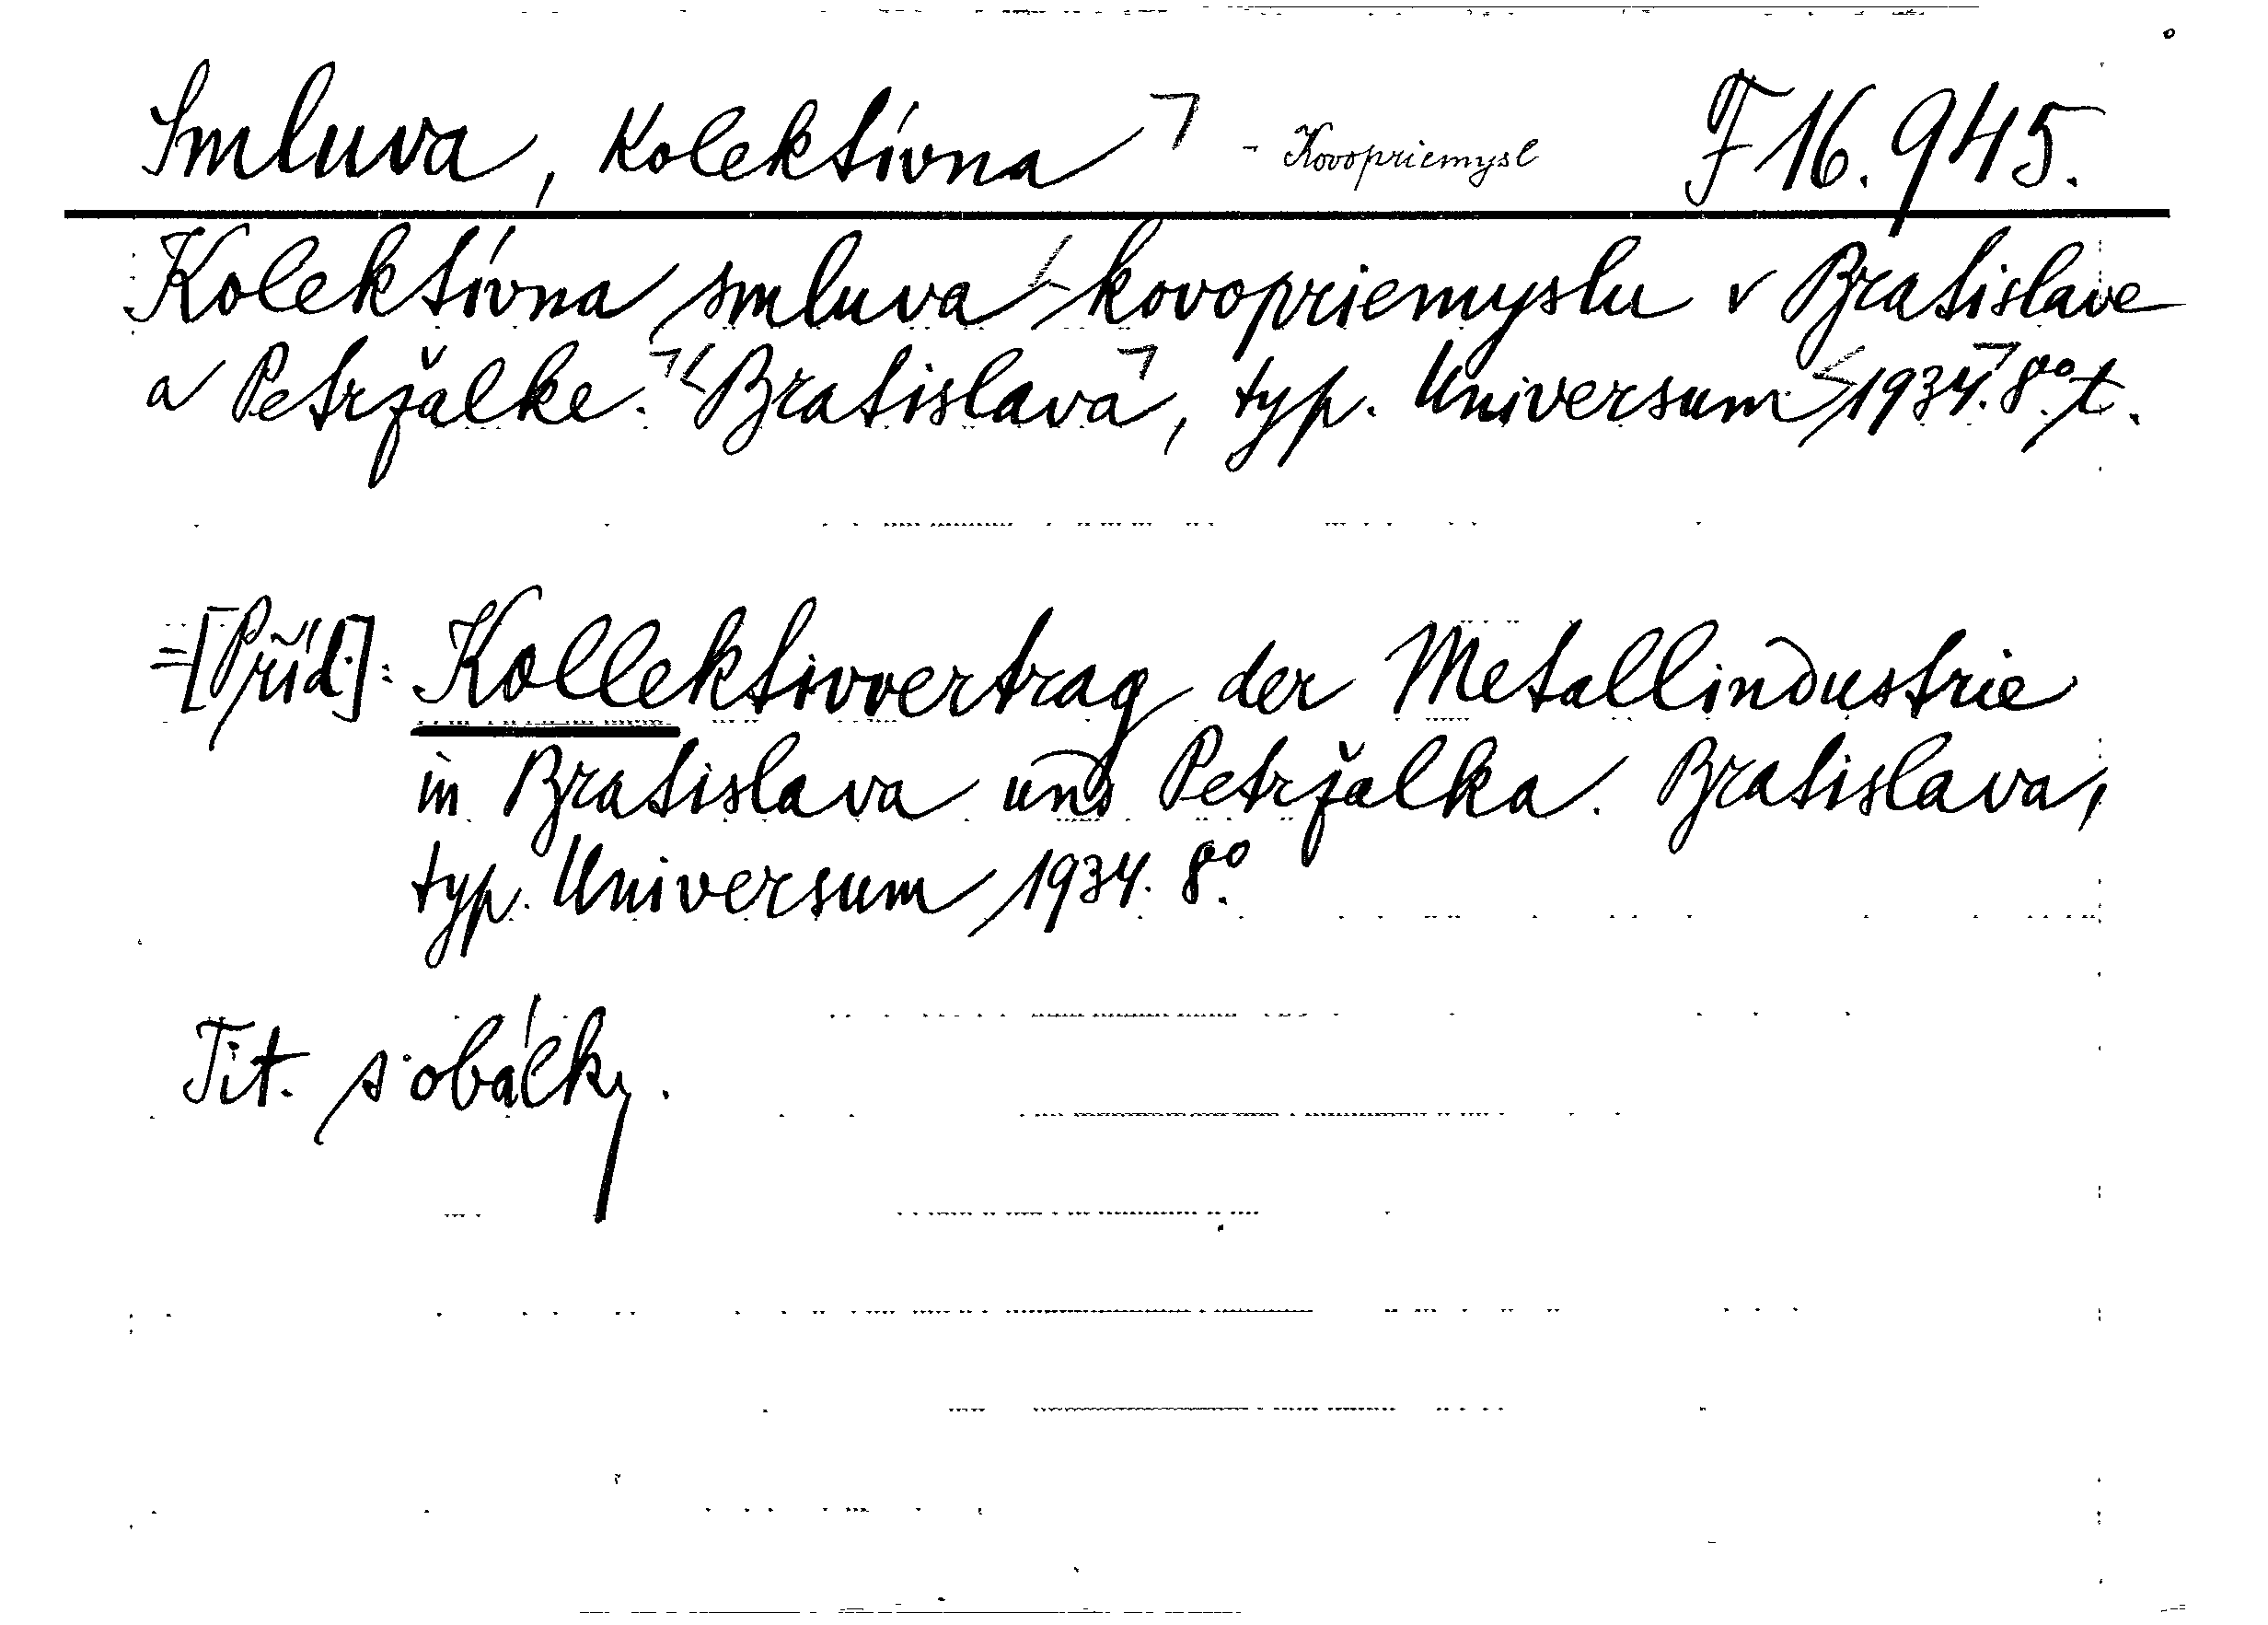 Smluva, Kolektívna - Kovopriemysl F 16.945.
Kolektívna smluva kovopriemyslu v Bratislave
a Petržalke. Bratislava, typ. Universum 1934. 8o. t.
=[Příd.]: Kollektivvertrag der Metallindustrie
in Bratislava und Petržalka. Bratislava,
typ. Universum 1934. 8o.
Tit. s obálky.